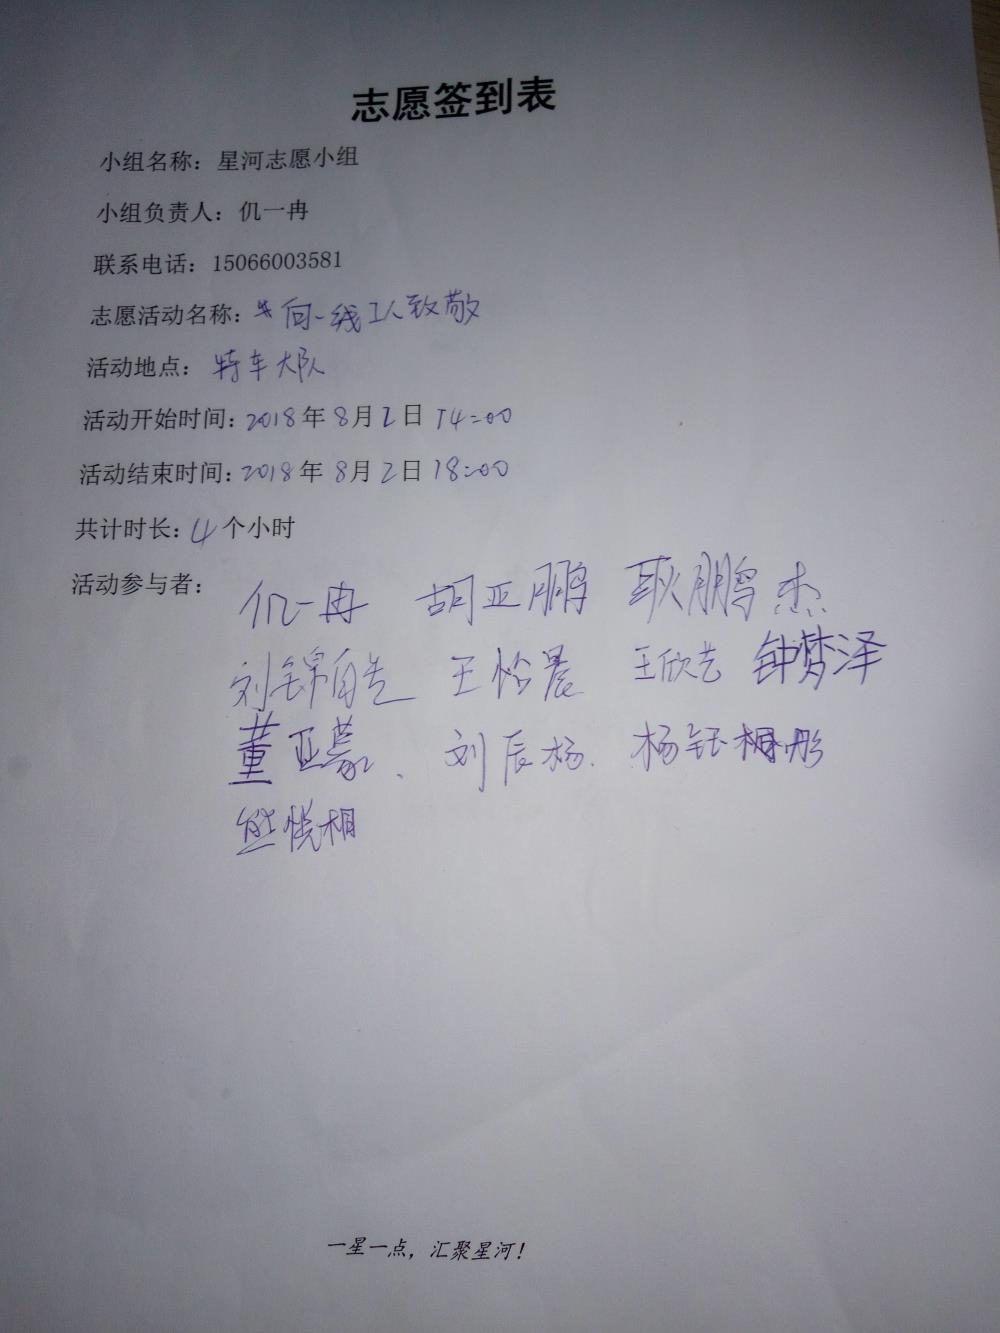 志愿签到表
小组名称：星河志愿小组
小组负责人：仉一冉
联系电话：15066003581
志愿活动名称：向一线工人致敬
活动地点：特车大队
活动开始时间：2018年8月2日 14:00
活动结束时间：2018年8月2日 18:00
共计时长：4个小时
活动参与者：
仉一冉 胡亚鹏 耿鹏杰
刘锦 王怡晨 王欣艺 钟梦泽
董亚蒙、刘辰杨. 杨钰彤
熊悦相
一星一点，汇聚星河！